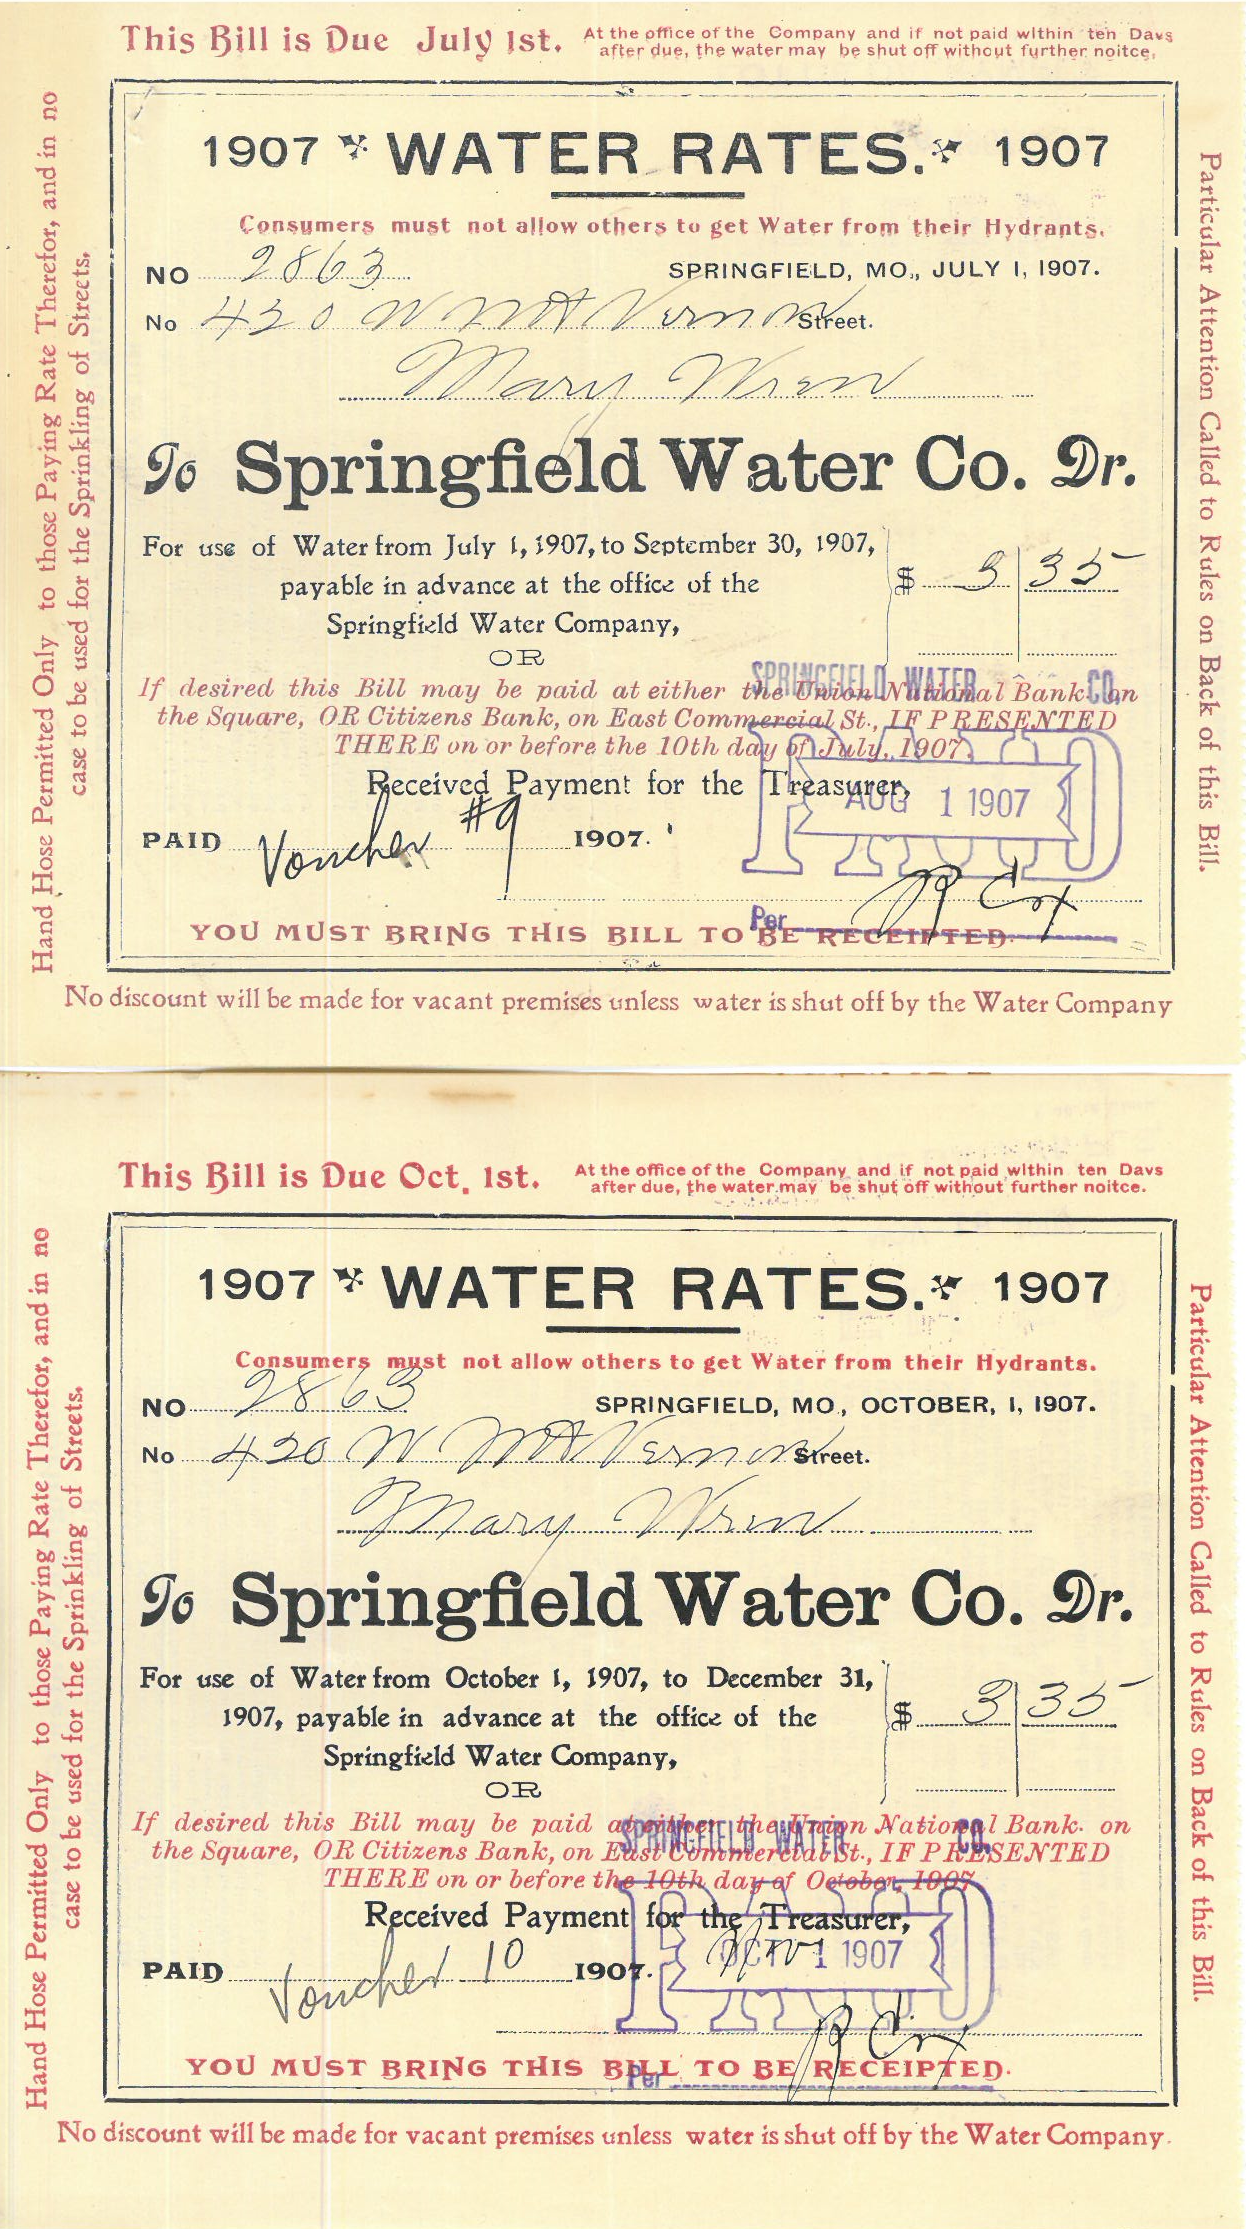 This Bill is Due July 1st.
At the office of the Company and if not paid within ten Days
after due, the water may be shut off without further noitce,
1907 WATER RATES. 1907
Consumers must not allow others to get Water from their Hydrants.
NO 2863 SPRINGFIELD, MO., JULY 1, 1907.
No 420 W Mt Vernon Street.
Mary Wren
To Springfield Water Co. Dr.
For use of Water from July 1, 1907, to September 30, 1907,
payable in advance at the office of the
Springfield Water Company,
$ 3 35
OR
If desired this Bill may be paid at either the Union National Bank on
the Square, OR Citizens Bank, on East Commercial St., IF PRESENTED
THERE on or before the 10th day of July, 1907.
SPRINGFIELD WATER CO.
PAID
AUG 1 1907
Received Payment for the Treasurer,
PAID Voucher #9 1907.
Per R Cox
YOU MUST BRING THIS BILL TO BE RECEIPTED.
No discount will be made for vacant premises unless water is shut off by the Water Company
Hand Hose Permitted Only to those Paying Rate Therefor, and in no
case to be used for the Sprinkling of Streets.
Particular Attention Called to Rules on Back of this Bill.
This Bill is Due Oct. 1st.
At the office of the Company and if not paid within ten Days
after due, the water may be shut off without further noitce.
1907 WATER RATES. 1907
Consumers must not allow others to get Water from their Hydrants.
NO 2863 SPRINGFIELD, MO., OCTOBER, 1, 1907.
No 420 W Mt Vernon Street.
Mary Wren
To Springfield Water Co. Dr.
For use of Water from October 1, 1907, to December 31,
1907, payable in advance at the office of the
Springfield Water Company,
$ 3 35
OR
If desired this Bill may be paid at either the Union National Bank on
the Square, OR Citizens Bank, on East Commercial St., IF PRESENTED
THERE on or before the 10th day of October, 1907
SPRINGFIELD WATER CO.
PAID
OCT 1 1907
Nov
Received Payment for the Treasurer,
PAID Voucher 10 1907.
R Cox
YOU MUST BRING THIS BILL TO BE RECEIPTED.
Per
No discount will be made for vacant premises unless water is shut off by the Water Company.
Hand Hose Permitted Only to those Paying Rate Therefor, and in no
case to be used for the Sprinkling of Streets.
Particular Attention Called to Rules on Back of this Bill.